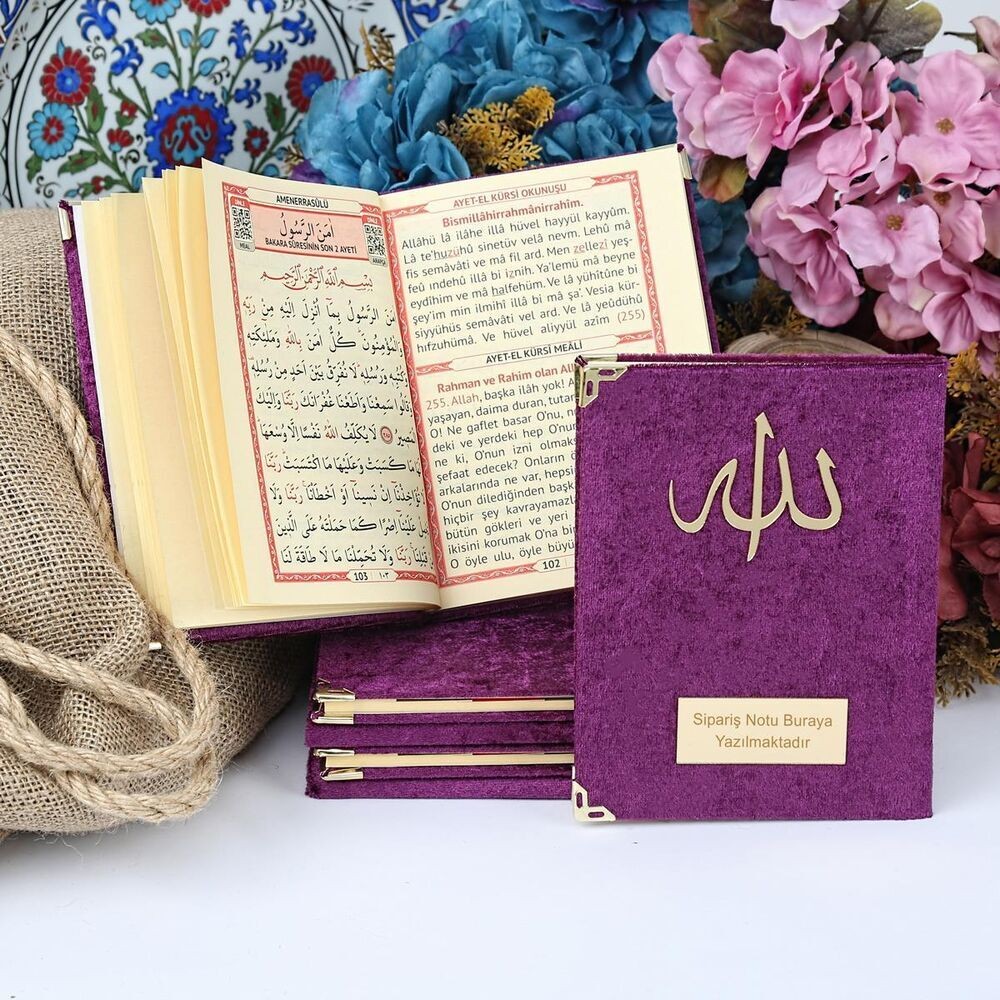 AMENERRASÛLÜ
اٰمَنَ الرَّسُولُ
BAKARA SÛRESİNİN SON 2 AYETİ
DİNLE
MEAL
DİNLE
ARAPÇA
بِسْمِ اللّٰهِ الرَّحْمٰنِ الرَّحِيمِ
اٰمَنَ الرَّسُولُ بِمَٓا اُنْزِلَ اِلَيْهِ مِنْ رَبِّهٖ
وَالْمُؤْمِنُونَ كُلٌّ اٰمَنَ بِاللّٰهِ وَمَلٰٓئِكَتِهٖ
وَكُتُبِهٖ وَرُسُلِهٖ لَا نُفَرِّقُ بَيْنَ اَحَدٍ مِنْ رُسُلِهٖ
وَقَالُوا سَمِعْنَا وَاَطَعْنَا غُفْرَانَكَ رَبَّنَا وَاِلَيْكَ
الْمَصِيرُ لَا يُكَلِّفُ اللّٰهُ نَفْسًا اِلَّا وُسْعَهَا
لَهَا مَا كَسَبَتْ وَعَلَيْهَا مَا اكْتَسَبَتْ رَبَّنَا
لَا تُؤَاخِذْنَٓا اِنْ نَسِينَٓا اَوْ اَخْطَأْنَا رَبَّنَا وَلَا
تَحْمِلْ عَلَيْنَٓا اِصْرًا كَمَا حَمَلْتَهُ عَلَى الَّذِينَ
مِنْ قَبْلِنَا رَبَّنَا وَلَا تُحَمِّلْنَا مَا لَا طَاقَةَ لَنَا
103 ١٠٣
AYET-EL KÜRSİ OKUNUŞU
Bismillâhirrahmânirrahîm.
Allâhü lâ ilâhe illâ hüvel hayyül kayyûm.
Lâ te'huzühû sinetüv velâ nevm. Lehû mâ
fis semâvâti ve mâ fil ard. Men zellezî yeş-
feû ındehû illâ bi iznih. Ya'lemü mâ beyne
eydîhim ve mâ halfehüm. Ve lâ yühîtûne bi
şey'im min ılmihî illâ bi mâ şa'. Vesia kür-
siyyühüs semâvâti vel ard. Ve lâ yeûdühû
hıfzuhümâ. Ve hüvel aliyyül azîm (255)
AYET-EL KÜRSİ MEÂLİ
Rahman ve Rahim olan All
255. Allah, başka ilâh yok! A
yaşayan, daima duran, tutan
O! Ne gaflet basar O'nu, n
deki ve yerdeki hep O'nun
ne ki, O'nun izni olmaks
şefaat edecek? Onların ö
arkalarında ne var, hepsi
O'nun dilediğinden başk
hiçbir şey kavrayamazl
bütün gökleri ve yeri
ikisini korumak O'na bi
O öyle ulu, öyle büyü
102
الله
Sipariş Notu Buraya
Yazılmaktadır